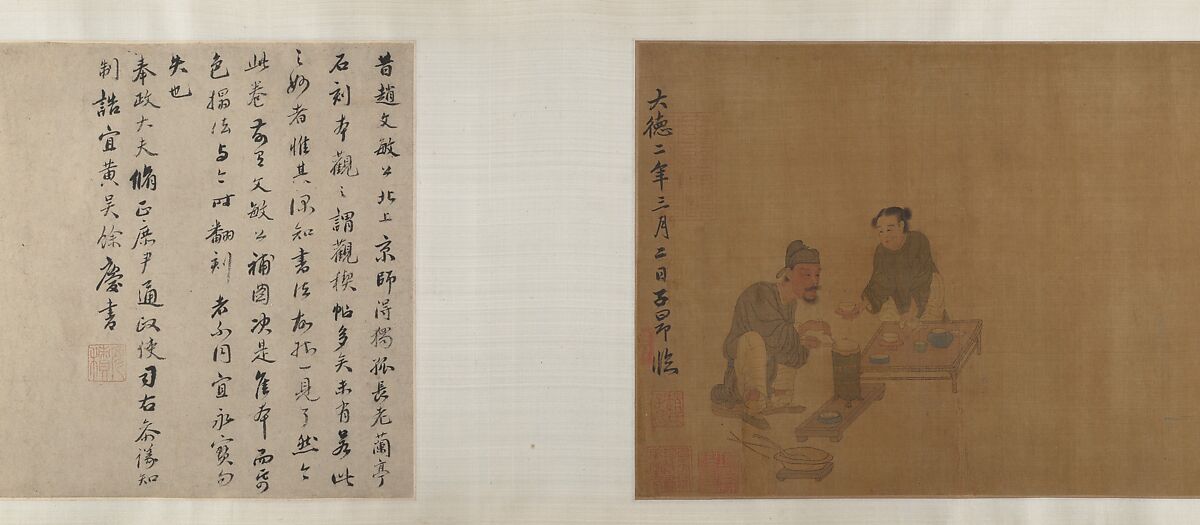 大德二年三月二日子昂臨
昔趙文敏公北上京師得獨孤長老蘭亭
石刻本觀之謂觀稧帖多矣未有若此
之妙者惟其深知書法故於一見了然今
此卷前有文敏公補圖决是本而
色搨法与今时翻刻者不同宜永寶勿
失也
奉政大夫脩正庶尹通政使司右叅議知
制誥宜黄吴餘慶書